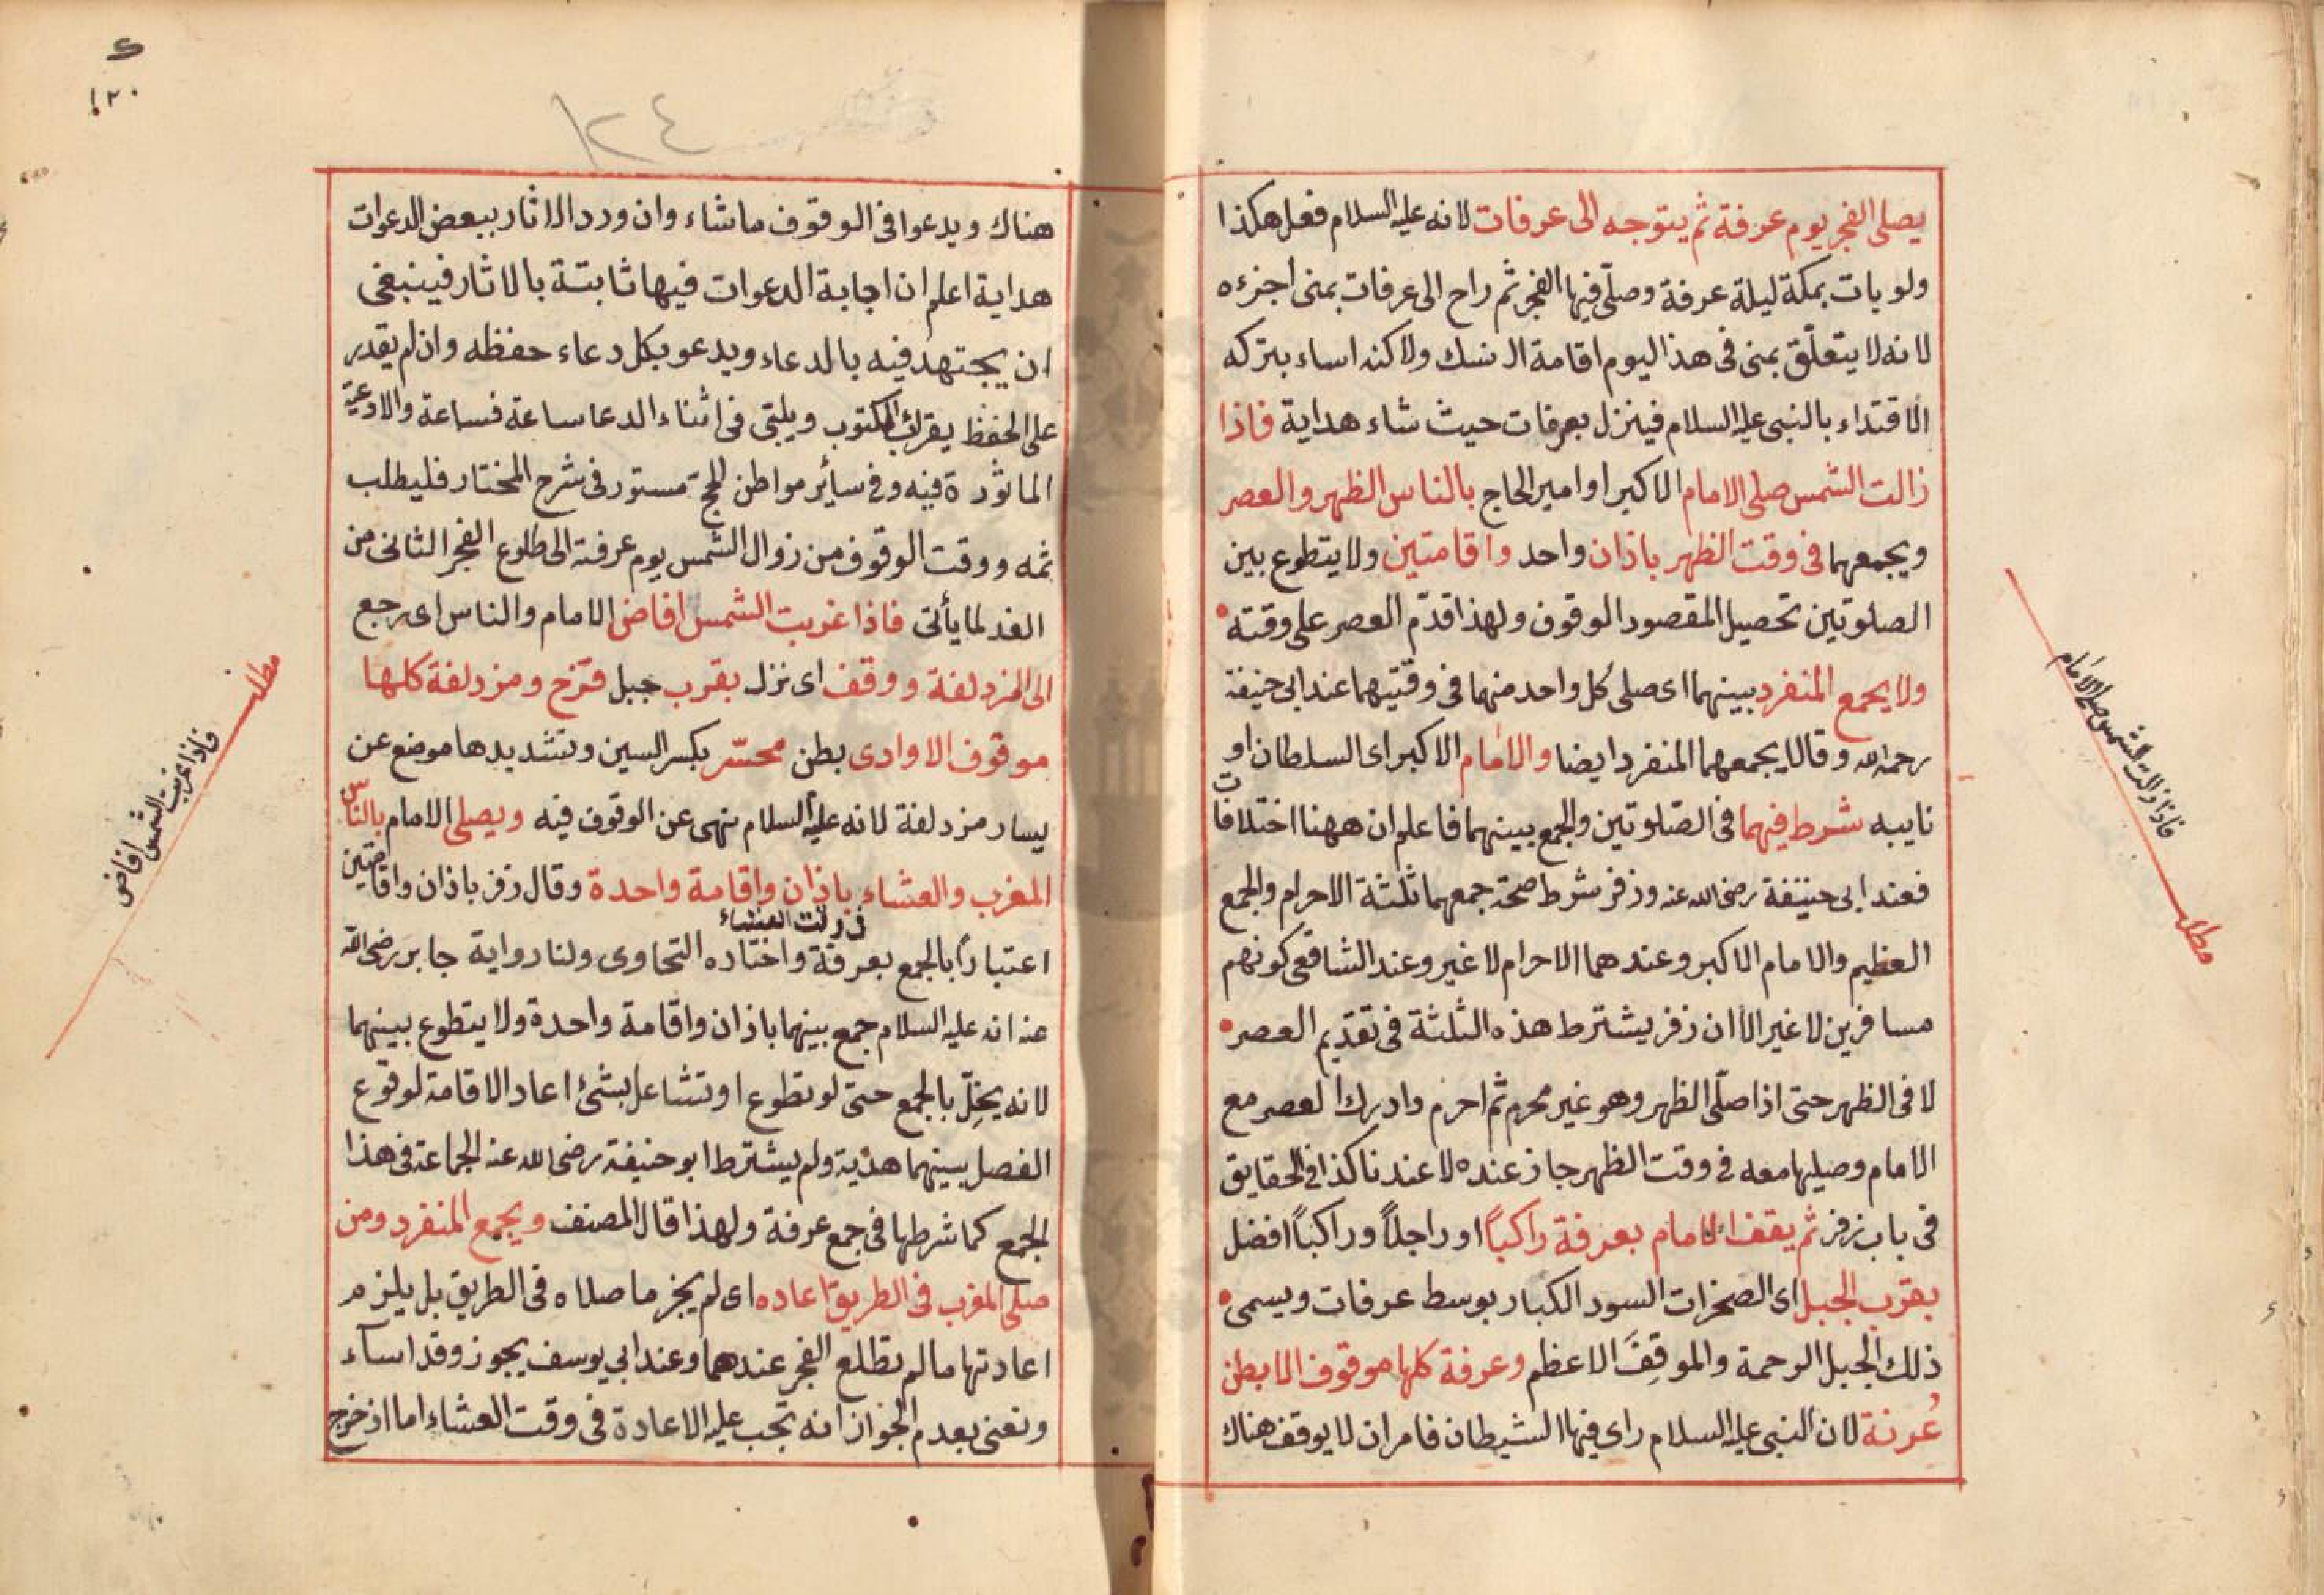 يصلى الفجر يوم عرفة ثم يتوجه الى عرفات لانه عليه السلام فعل هكذا
ولو بات بمكة ليلة عرفة وصلّى فيها الفجر ثم راح الى عرفات بمنى اجزءه
لانه لا يتعلّق بمنى فى هذا اليوم اقامة النسك ولاكنه اساء بتركه
الاقتداء بالنبى عليه السلام فينزل بعرفات حيث شاء هداية فاذا
زالت الشمس صلى الامام الاكبر او امير الحاج بالناس الظهر والعصر
ويجمعهما فى وقت الظهر باذان واحد واقامتين ولا يتطوع بين
الصلوتين تحصيل المقصود الوقوف ولهذا قدّم العصر على وقته
ولا يجمع المنفرد بينهما اى صلى كل واحد منهما فى وقتيهما عند ابى حنيفة
رحمه الله وقالا يجمعهما المنفرد ايضا والامام الاكبر اى السلطان او
نايبه شرط فيهما فى الصّلوتين والجمع بينهما فاعلم ان ههنا اختلافات
فعند ابى حنيفة رضى الله عنه وزفر شرط صحة جمعهما ثلثة الاحرام والجمع
العظيم والامام الاكبر وعندهما الاحرام لا غير وعند الشافعى كونهم
مسافرين لا غير الا ان زفر يشترط هذه الثلثة فى تقديم العصر
لا فى الظهر حتى اذا صلّى الظهر وهو غير محرم ثم احرم وادرك العصر مع
الامام وصليها معه فى وقت الظهر جاز عنده لا عندنا كذا فى الحقايق
فى باب زفر ثم يقف الامام بعرفة راكباً او راجلاً وراكباً افضل
بقرب الجبل اى الصخرات السود الكبار بوسط عرفات ويسمى
ذلك الجبل الرحمة والموقِفَ الاعظم وعرفة كلها موقوف الا بطن
عُرنة لان النبى عليه السلام راى فيها الشيطان فامر ان لا يوقف هناك
فاذا زالت الشمس صلى الامام
مطلب
١٢٠
١٢٤
هناك ويدعوا فى الوقوف ما شاء وان ورد الاثار ببعض الدعوات
هداية اعلم ان اجابة الدعوات فيها ثابتة بالاثار فينبغى
ان يجتهد فيه بالدعاء ويدعو بكل دعاء حفظه وان لم يقدر
على الحفظ يقرء المكتوب ويلبّى فى اثناء الدعا ساعة فساعة والادعية
الماثورة فيه وفى سائر مواطن الحج مستور فى شرح المختار فليطلب
ثمه ووقت الوقوف من زوال الشمس يوم عرفة الى طلوع الفجر الثانى من
الغد لما يأتى فاذا غربت الشمس افاض الامام والناس اى رجع
الى المزدلفة ووقف اى نزل بقرب جبل قزح ومزدلفة كلها
موقوف الا وادى بطن محسّر بكسر السين وتشديدها موضع عن
يسار مزدلفة لانه عليه السلام نهى عن الوقوف فيه ويصلى الامام بالناس
المغرب والعشاء باذان واقامة واحدة وقال زفر باذان واقامتين
فى وقت العشاء
اعتباراً بالجمع بعرفة واختاره التحاوى ولنا رواية جابر رضى الله
عنه انه عليه السلام جمع بينهما باذان واقامة واحدة ولا يتطوع بينهما
لانه يخلّ بالجمع حتى لو تطوع او تشاغل بشئ اعاد الاقامة لوقوع
الفصل بينهما هدية ولم يشترط ابو حنيفة رضى الله عنه الجماعة فى هذا
الجمع كما شرطها فى جمع عرفة ولهذا قال المصنف ويجمع المنفرد ومن
صلى المغرب فى الطريق اعاده اى لم يجز ما صلاه فى الطريق بل يلزم
اعادتها مالم تطلع الفجر عندهما وعند ابي يوسف يجوز وقد اسآء
ونعنى بعدم الجواز انه تجب عليه الاعادة فى وقت العشاء اما اذ خرج
مطلب
فاذا غربت الشمس افاض